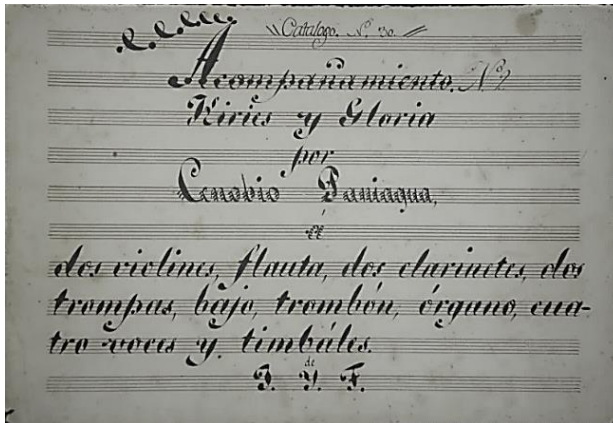 Catalogo. N. 30.
Acompañamiento. Nº
Kiries y Gloria
por
Cenobio Paniagua,
á
dos violines, flauta, dos clarinetes, dos
trompas, bajo, trombón, órgano, cua-
tro voces y timbáles.
de
J. Y. F.